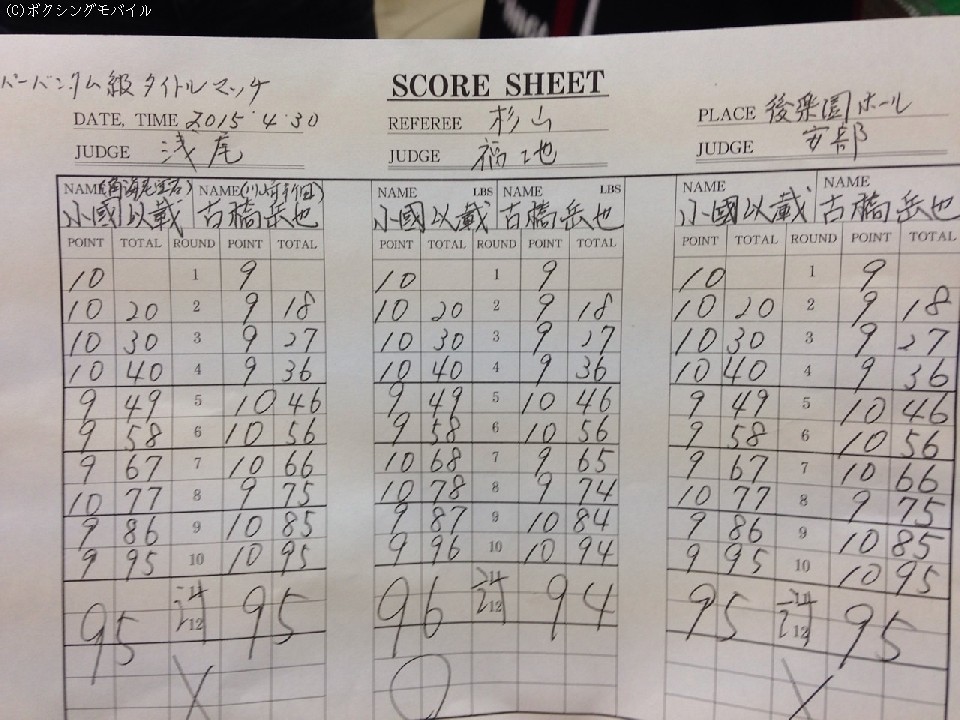 (C)ボクシングモバイル
パーバンタム級タイトルマッチ
SCORE SHEET
DATE, TIME 2015.4.30 REFEREE 杉山 PLACE 後楽園ホール
JUDGE 浅尾 JUDGE 福地 JUDGE 安部
NAME (角海老宝石) NAME (川崎新田) NAME LBS NAME LBS NAME NAME
小國以載 古橋岳也 小國以載 古橋岳也 小國以載 古橋岳也
POINT TOTAL ROUND POINT TOTAL POINT TOTAL ROUND POINT TOTAL POINT TOTAL ROUND POINT TOTAL
10 1 9 10 1 9 10 1 9
10 20 2 9 18 10 20 2 9 18 10 20 2 9 18
10 30 3 9 27 10 30 3 9 27 10 30 3 9 27
10 40 4 9 36 10 40 4 9 36 10 40 4 9 36
9 49 5 10 46 9 49 5 10 46 9 49 5 10 46
9 58 6 10 56 9 58 6 10 56 9 58 6 10 56
9 67 7 10 66 10 68 7 9 65 9 67 7 10 66
10 77 8 9 75 10 78 8 9 74 10 77 8 9 75
9 86 9 10 85 9 87 9 10 84 9 86 9 10 85
9 95 10 10 95 9 96 10 10 94 9 95 10 10 95
95 計 95 96 計 94 95 計 95
12 12 12